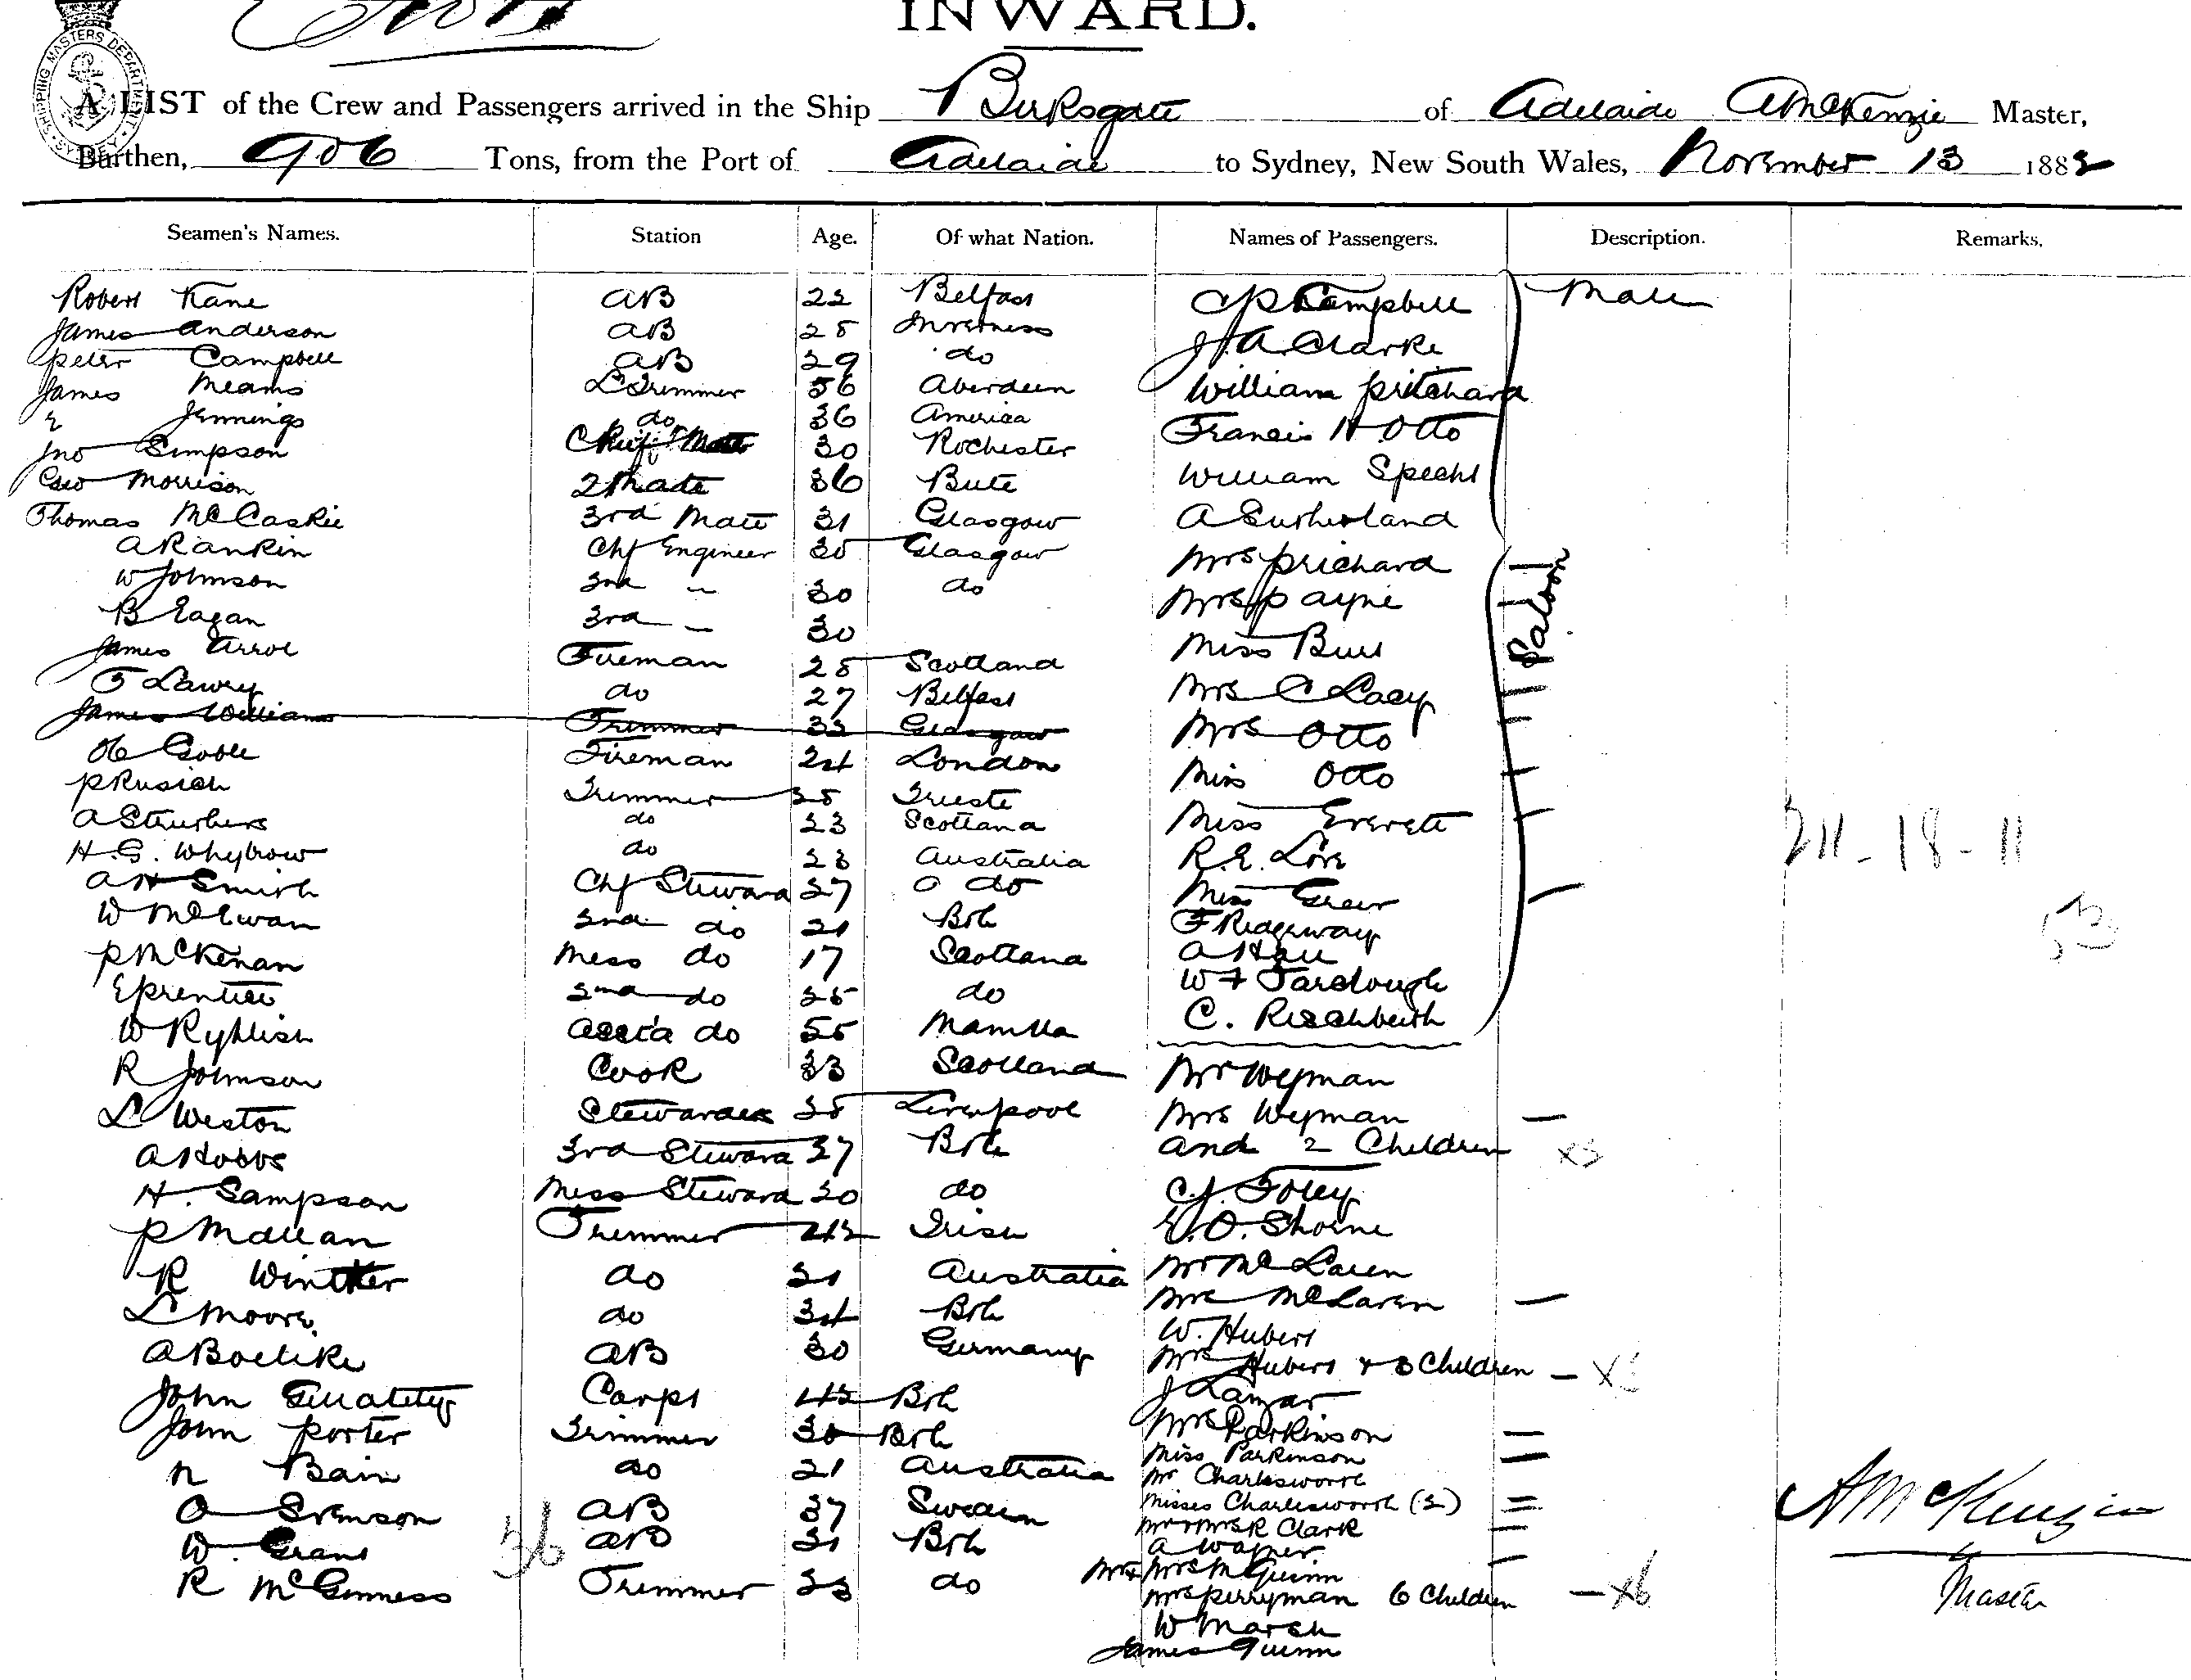 INWARD.
SHIPPING MASTERS DEPARTMENT SYDNEY
A LIST of the Crew and Passengers arrived in the Ship Birksgate of Adelaide A McKenzie Master,
Burthen, 906 Tons, from the Port of Adelaide to Sydney, New South Wales, November 13 1882
Seamen's Names. Station Age. Of what Nation. Names of Passengers. Description. Remarks.
Robert Kane AB 22 Belfast C P Campbell Male
James Anderson AB 25 Inverness J A Clarke
Peter Campbell AB 29 do William Pritchard
James Mearns L Trimmer 56 Aberdeen Francis H Otto
E Jennings do 36 America William Specht
Jno Simpson Chief Mate 30 Rochester A Sutherland
Geo Morrison 2 Mate 36 Bute Mrs Prichard
Thomas McCaskie 3rd Mate 31 Glasgow Mrs Payne
A Rankin Chf Engineer 35 Glasgow Miss Bull
W Johnson 2nd " 30 do Mrs C Lacy
B Eagan 3rd " 30 Mrs Otto
James Arrol Fireman 25 Scotland Miss Otto
F Lawry do 27 Belfast Miss Everett
James Williams Trimmer 33 Glasgow R.E. Love
H Goble Fireman 24 London Miss Greer
P Rusich Trimmer 25 Trieste F Ridgeway
A Struthers do 23 Scotland A Hall
H.G. Whybrow do 23 Australia W F
A H Smith Chf Steward 27 do C. Rischbieth
W McEwan 2nd do 21 Brh Saloon
P McKenan Mess do 17 Scotland
E Prentice 2nd do 25 do
W do 55 Manilla
R Johnson Cook 33 Scotland Mr Wyman
L Weston Stewardess 35 Liverpool Mrs Wyman
A Hobbs 3rd Steward 27 Brh and 2 Children
H. Sampson Mess Steward 20 do C.J. Foley
P Trimmer 42 Irish E.O. Shorne
R Winther do 21 Australia Mr McLaren
L Moore do 34 Brh Mrs McLaren
A Boelike AB 30 Germany W. Hubert
John Carpt 42 Brh Mrs Hubert & 3 Children
John Porter Trimmer 30 Brh J Lamar
N Bain do 21 Australia Mrs Parkinson
O Svenson AB 37 Sweden Miss Parkinson
W. Grant AB 21 Brh Mr Charlesworth
R McGinness Trimmer 23 do Misses Charlesworth (2)
Mr & Mrs R Clark
A Wagner
Mr & Mrs McGuinn
Mrs Perryman 6 Children
W Marsh
James Guinn
36
211-18-11
53
A McKenzie
Master